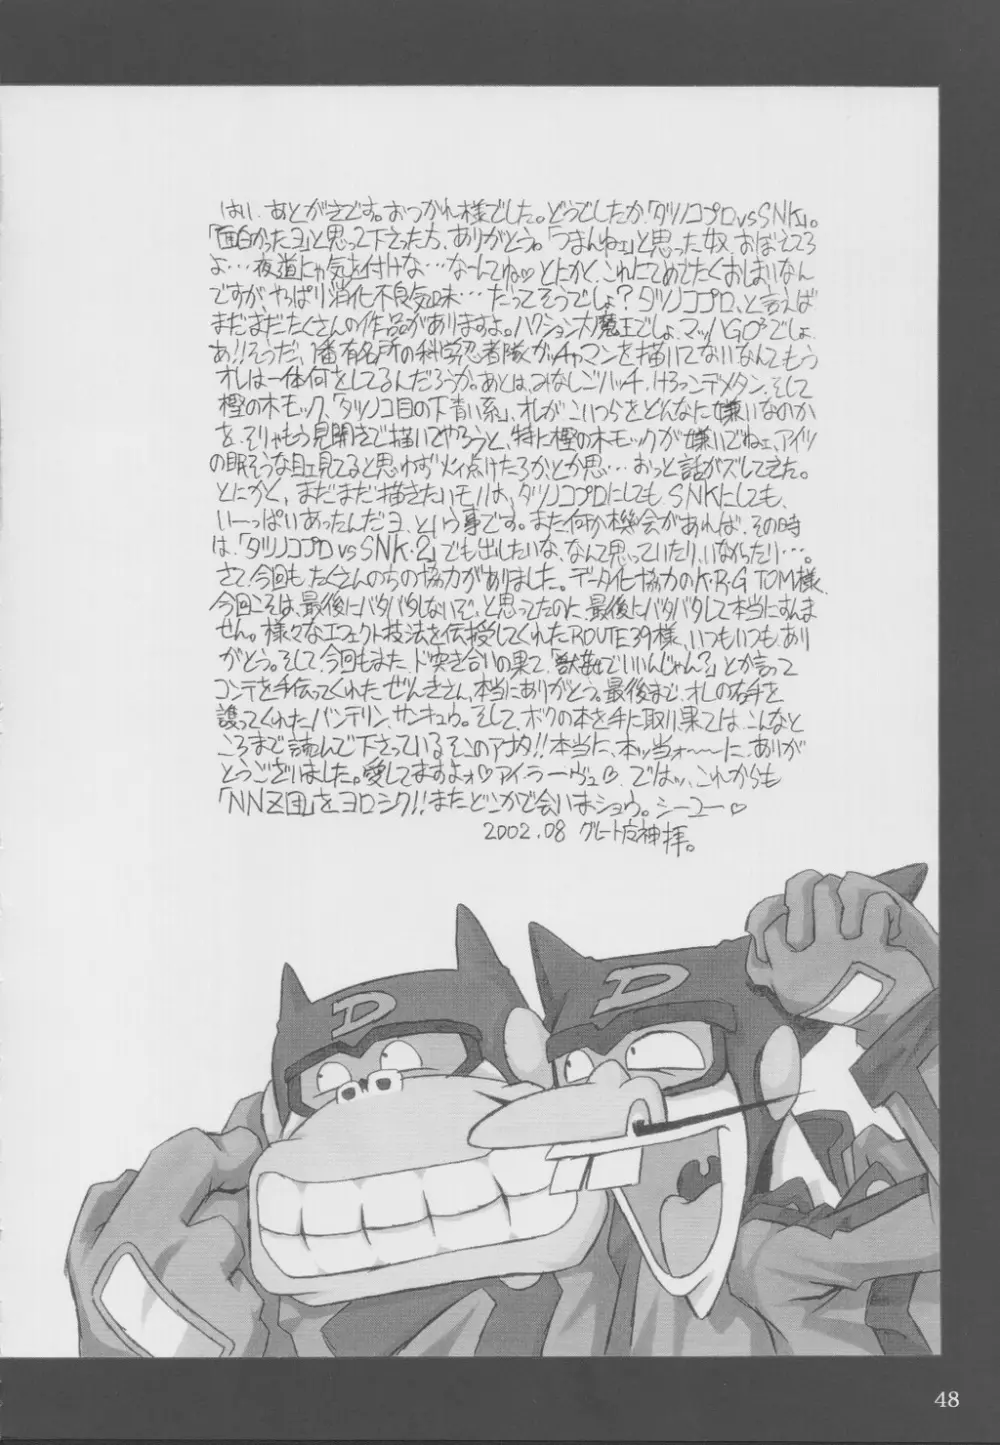 はい、あとがきです。おつかれ様でした。どうでしたか、「タツノコプロvsSNK」。
「面白かったヨ」と思って下さった方、ありがとう。「つまんねェ」と思った奴、おぼえてろ
よ…夜道にゃ気を付けな…なーんてね♡とにかく、これにてめでたくおしまいなん
ですが、やっぱり消化不良気味…だってそうでしょ?タツノコプロ、と言えば
まだまだたくさんの作品がありますよ。ハクション大魔王でしょ、マッハGO³でしょ、
あ!!そうだ、1番有名所の科学忍者隊ガッチャマンを描いてないなんてもう
オレは一体何をしてるんだろうか。あとは、みなしごハッチ、けろっこデメタン、そして
樫の木モック、「タツノコ目の下青い系」、オレがこいつらをどんなに嫌いなのか
を、そりゃもう見開きで描いてやろうと、特に樫の木モックが嫌いでねェ、アイツ
の眠そうな目ェ見てると思わず火ィ点けたろかとか思…おっと話がズレてきた。
とにかく、まだまだ描きたいモノは、タツノコプロにしてもSNKにしても、
いーっぱいあったんだヨ、という事です。また何か機会があれば、その時
は、「タツノコプロvsSNK・2」でも出したいな、なんて思っていたり、いなかったり…。
さて、今回も、たくさんの方の協力がありました。データ化協力のK・R・G TOM様、
今回こそは、最後にバタバタしないぞ、と思ってたのに、最後にバタバタして本当にすんま
せん。様々なエフェクト技法を伝授してくれたROUTE39様、いつもいつも、あり
がとう。そして、今回もまた、ド突き合いの果て、「獣姦でいいんじゃん?」とか言って
コンテを手伝ってくれた、ぜんきさん、本当にありがとう。最後まで、オレの右手を
護ってくれたバンテリン、サンキュウ。そして、ボクの本を手に取り、果ては、こんなと
ころまで読んで下さっているそこのアナタ!!本当に、本ッ当ォ〜〜に、ありが
とうございました。愛してますよォ♡アイ・ラーヴュ♡、ではッ、これからも
「NNZ団」をヨロシク!!またどこかで会いまショウ。シーユー♡
2002.08 グレート 神 拝。
D
D
48